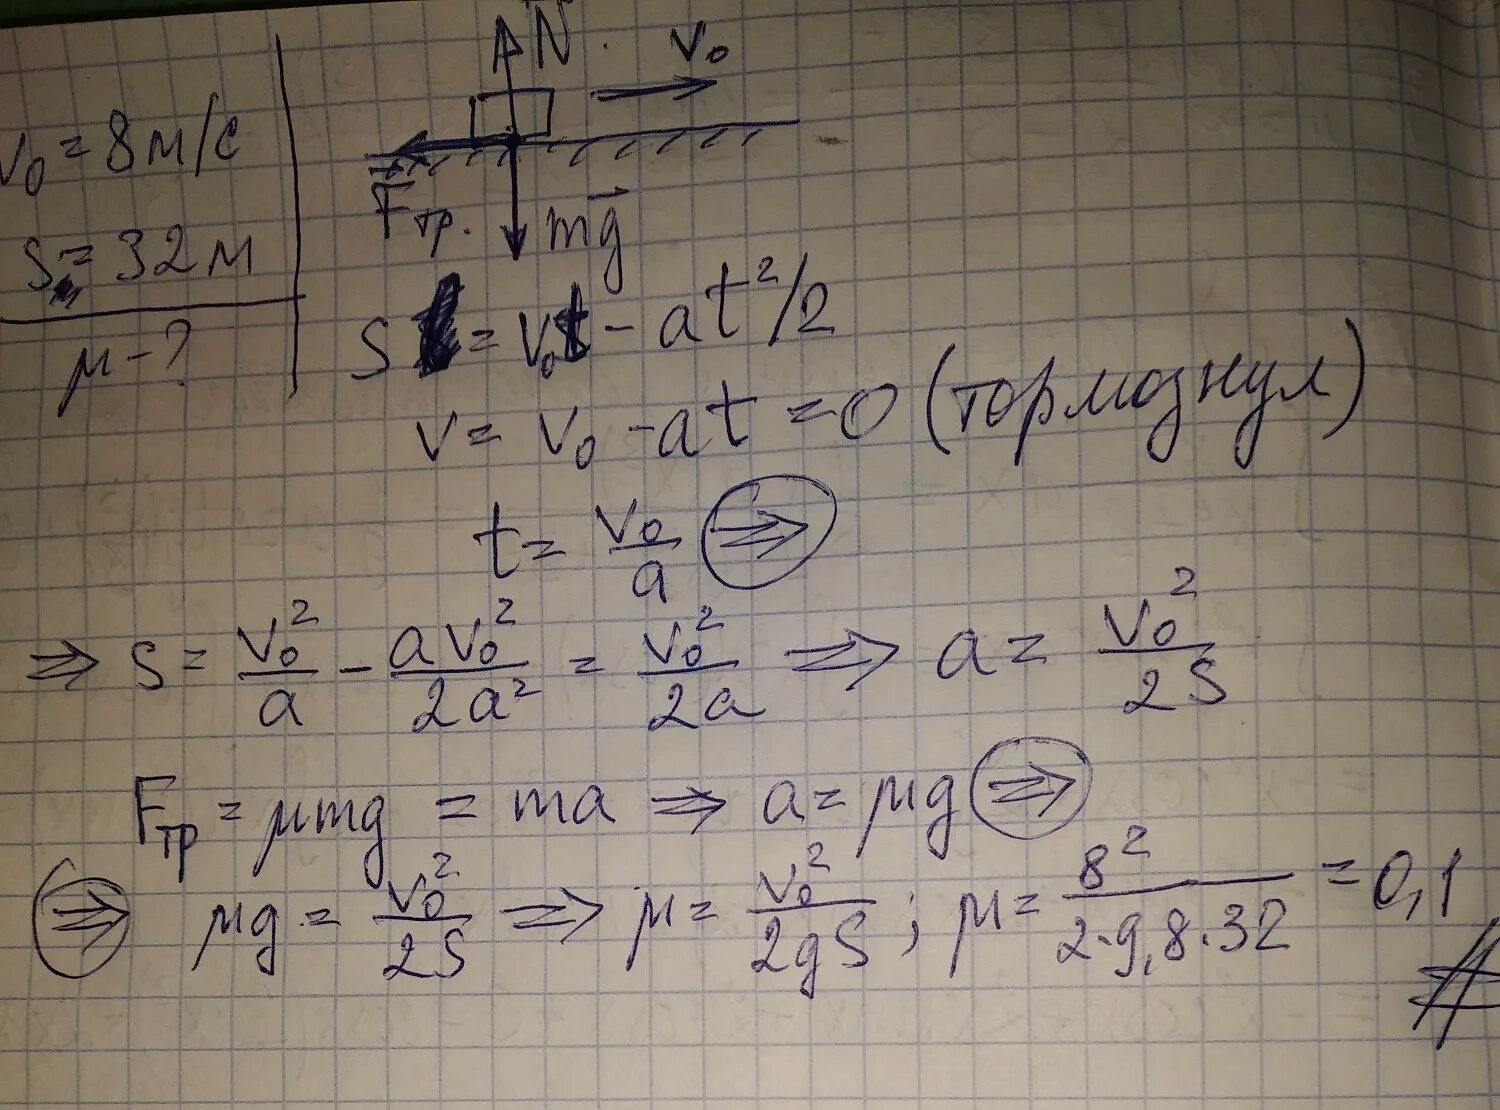 v₀ = 8 м/с
S = 32 м
μ - ?
N
v₀
Fтр.
mg
S = v₀t - at²/2
v = v₀ - at = 0 (тормознул)
t = v₀/a ⇒
⇒ S = v₀²/a - av₀²/2a² = v₀²/2a ⇒ a = v₀²/2S
Fтр = μmg = ma ⇒ a = μg ⇒
⇒ μg = v₀²/2S ⇒ μ = v₀²/2gS ; μ = 8²/2·9,8·32 = 0,1